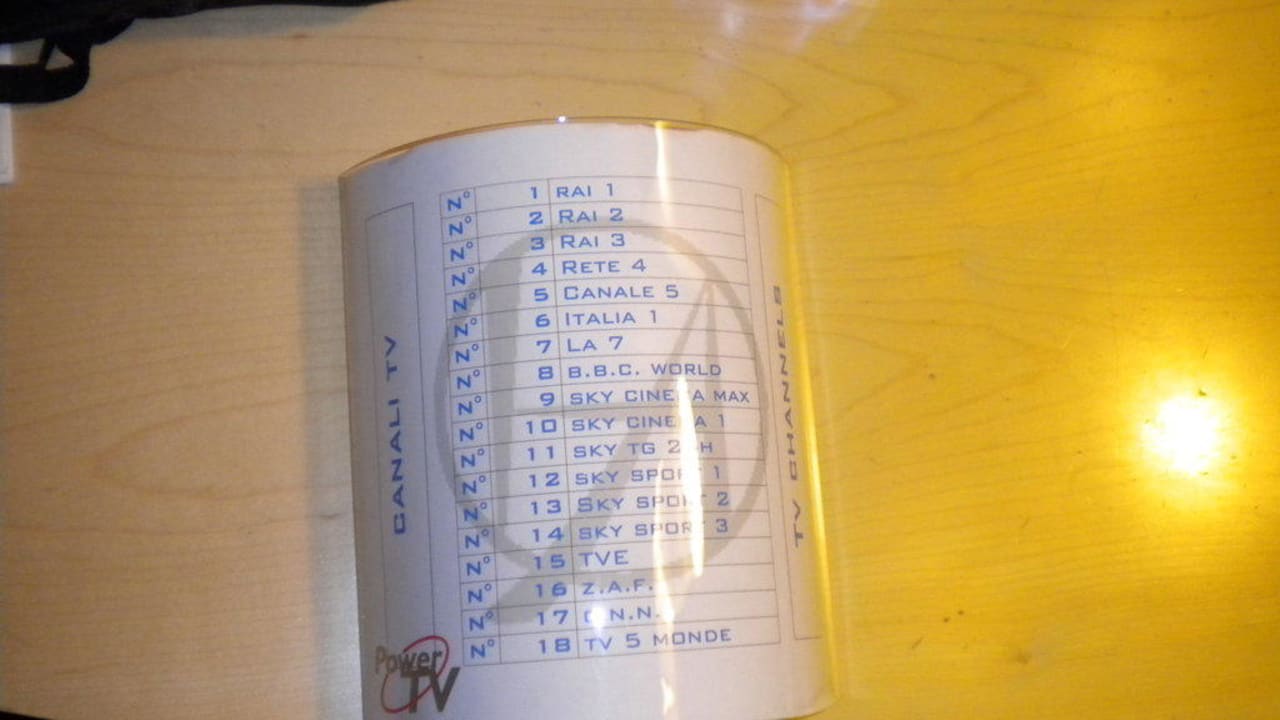 CANALI TV
N° 1 RAI 1
N° 2 RAI 2
N° 3 RAI 3
N° 4 RETE 4
N° 5 CANALE 5
N° 6 ITALIA 1
N° 7 LA 7
N° 8 B.B.C. WORLD
N° 9 SKY CINEMA MAX
N° 10 SKY CINEMA 1
N° 11 SKY TG 24H
N° 12 SKY SPORT 1
N° 13 SKY SPORT 2
N° 14 SKY SPORT 3
N° 15 TVE
N° 16 Z.A.F.
N° 17 C.N.N.
N° 18 TV 5 MONDE
TV CHANNELS
Power
TV